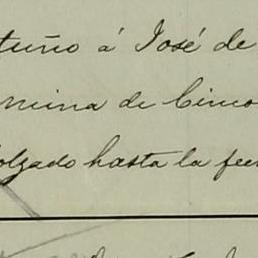 tuño á José de
mina de Cinco
olgado hasta la fec